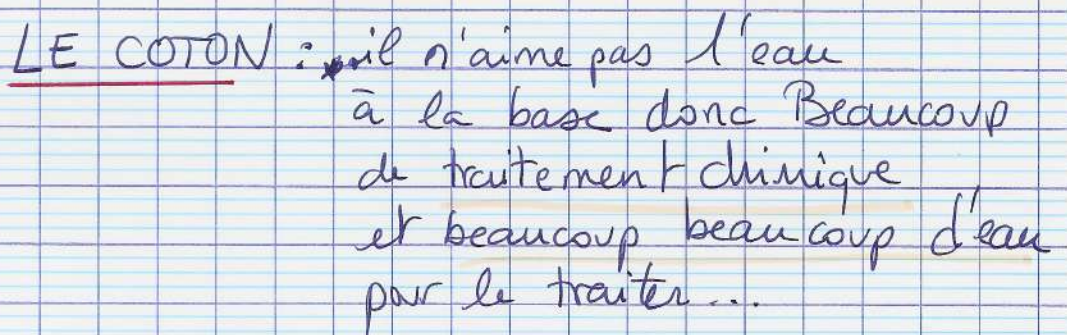 LE COTON : il n'aime pas l'eau
à la base donc Beaucoup
de traitement chimique
et beaucoup beaucoup d'eau
pour le traiter...